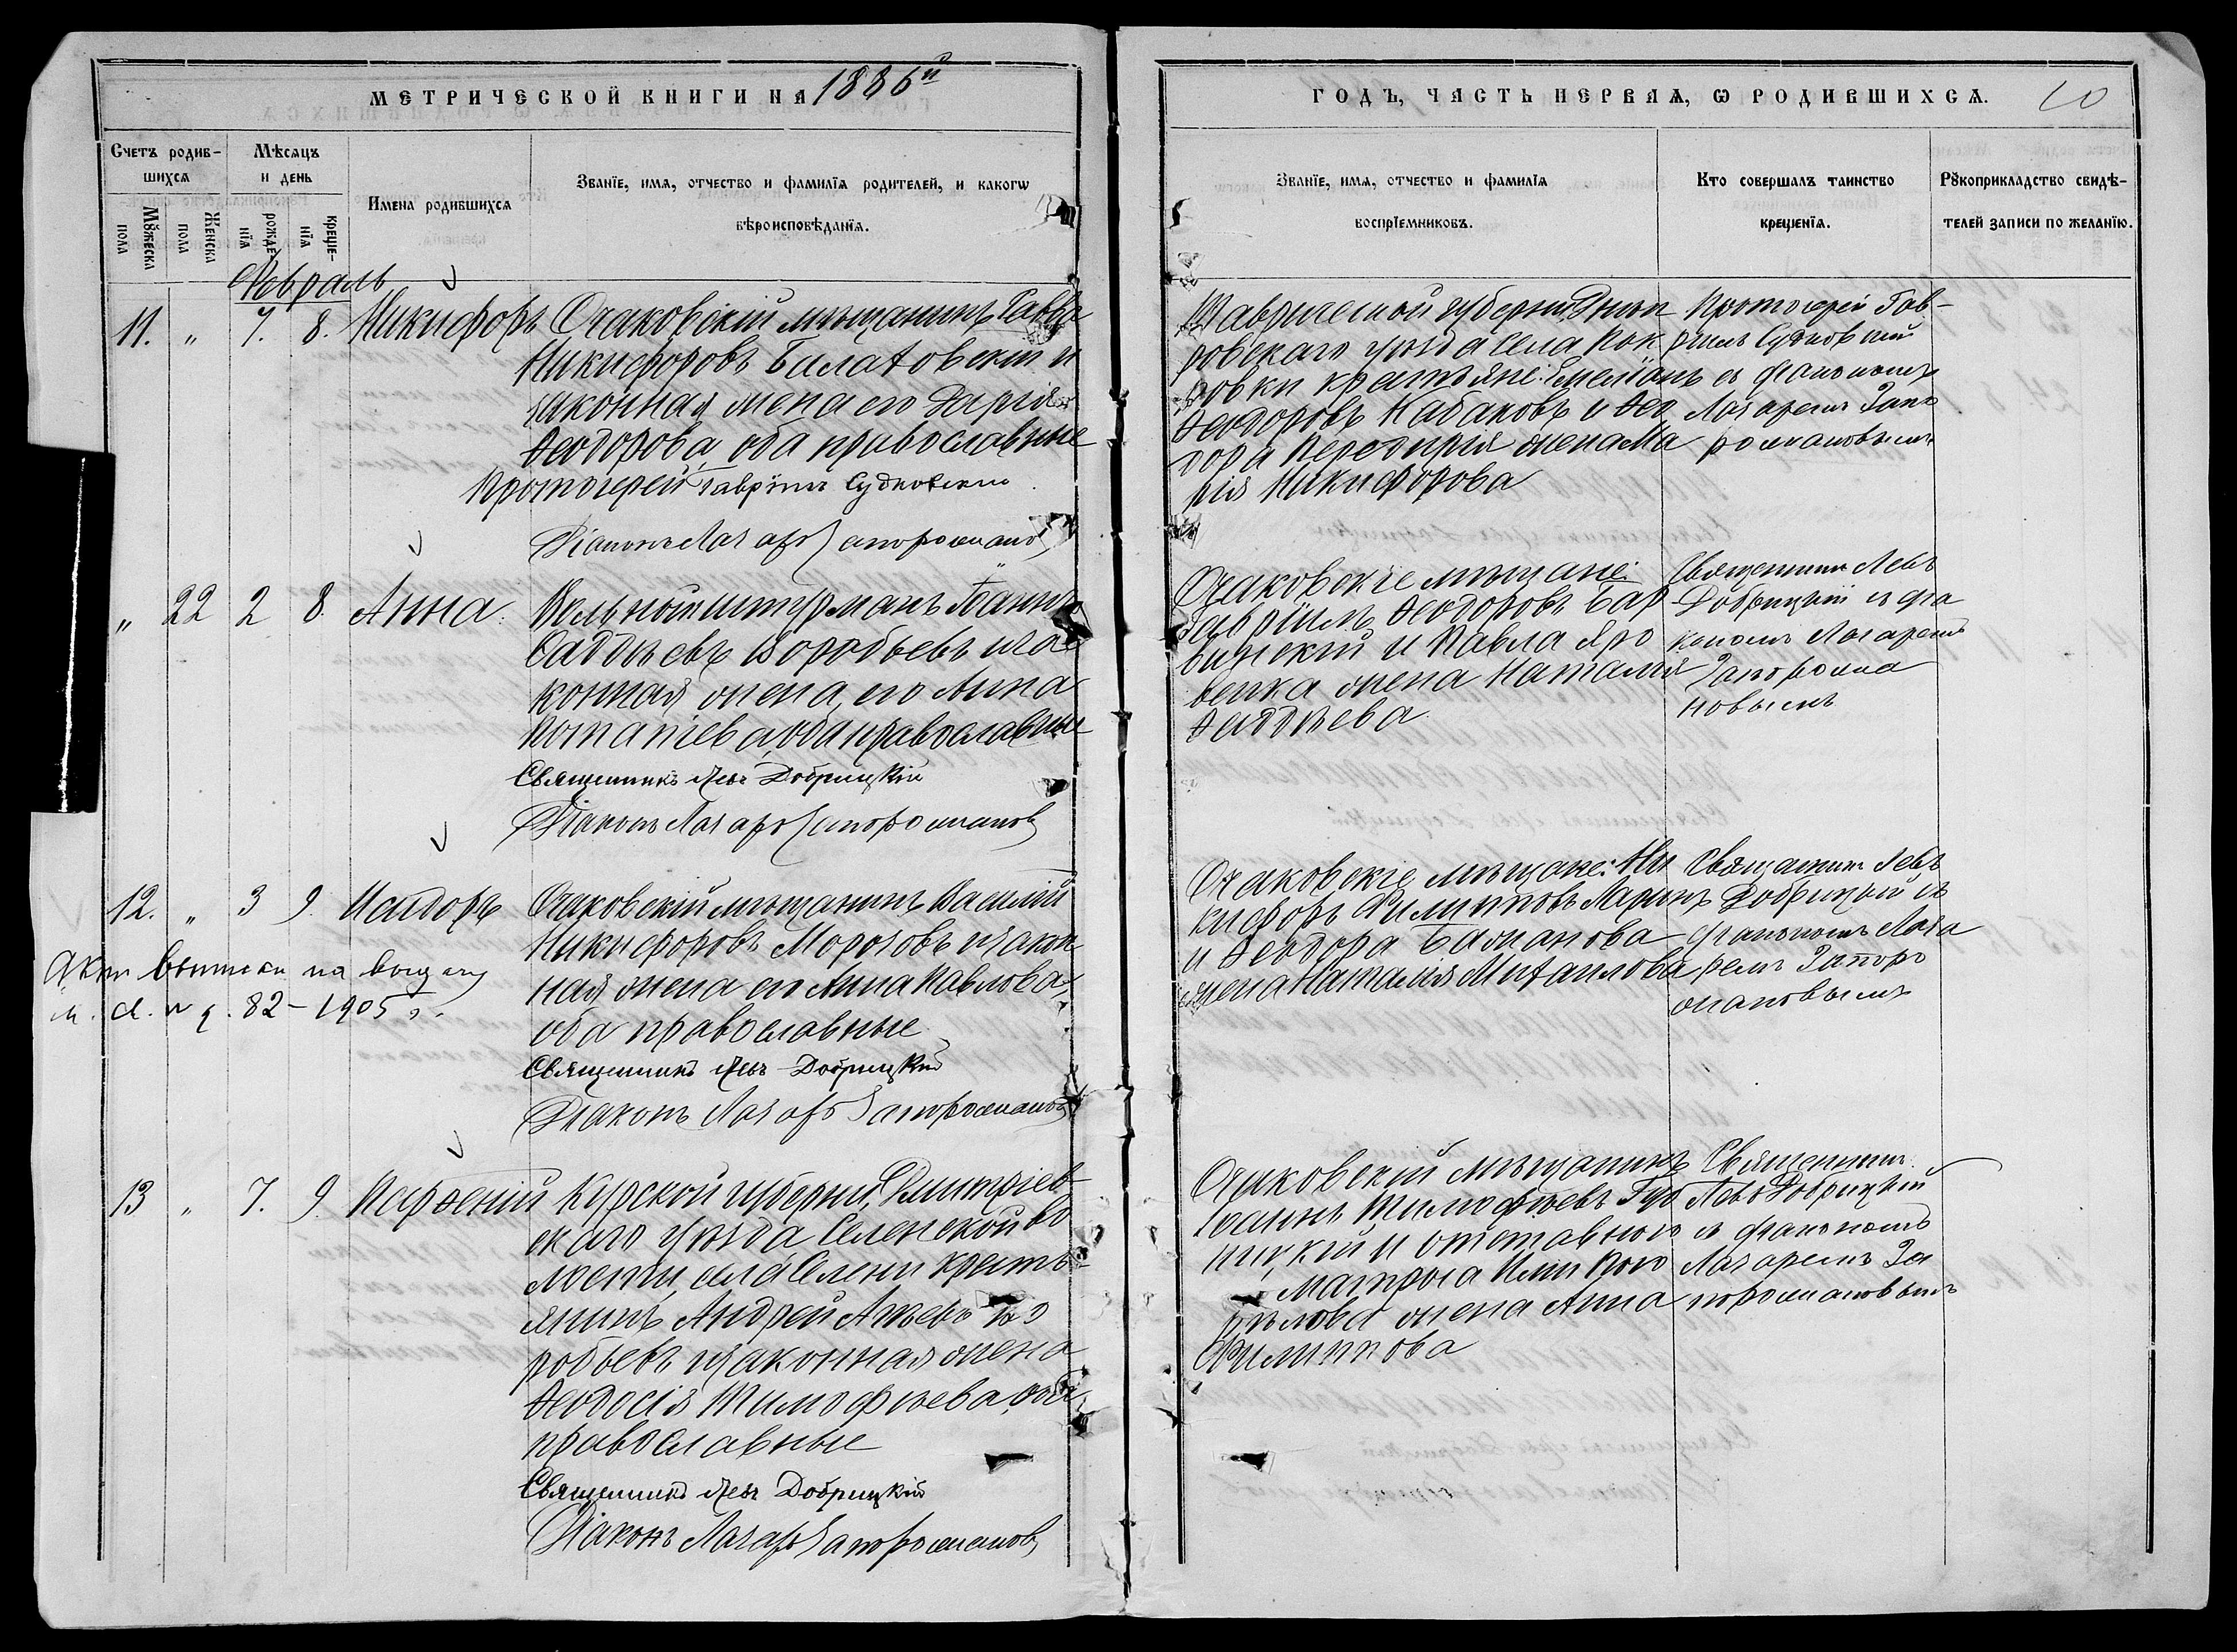 МЕТРИЧЕСКОЙ КНИГИ НА 1886й
ГОДЪ, ЧАСТЬ ПЕРВАЯ, Ѡ РОДИВШИХСѦ. 10
Счетъ родив-
шихсѧ
Мꙋжеска
пола
Женска
пола
Мѣсѧцъ
и день
рожде-
нїя
креще-
нїя
Имена родившихсѧ
Званїе, имѧ, отчество и фамилїѧ родителей, и какогѡ
вѣроисповѣданїѧ.
Званїе, имѧ, отчество и фамилїѧ
воспрїемниковъ.
Кто совершалъ таинство
крещенїѧ.
Рꙋкоприкладство свидѣ-
телей записи по желанїю.
Февраль
11. " 7. 8. Никифоръ
Очаковскій мѣщанинъ Савва
Никифоровъ Билатовскій и
законная жена его Дарія
Ѳеодорова, оба православные
Протоіерей Гавріилъ Судковскій
Діаконъ Лазарь Запорожанов
Таврической губерніи Днѣп
ровскаго уѣзда села Пок
ровки крестьяне: Емеліанъ
Ѳеодоровъ Кабаковъ и Ѳео
дора жена Ма
рія Никифорова
Протоіерей Гав-
ріилъ Судковскій
съ діакономъ
Лазаремъ Запо
рожановымъ
" 22 2 8. Анна.
Вольный штурманъ Іоаннъ
Ѳаддѣевъ Воробьевъ и зао
конная жена его Анна
Игнатіева оба православные
Священникъ Левъ Добрицкій
Діаконъ Лазарь Запорожанов
Очаковскіе мѣщане:
Гавріилъ Ѳеодоровъ Бар
винскій и Павла Яро
венка жена Наталія
Ѳаддѣева
Священникъ Левъ
Добрицкій съ діа
кономъ Лазаремъ
Запорожа
новымъ
12. " 3 9. Исидоръ
Очаковскій мѣщанинъ Василій
Никифоровъ Морозовъ и закон
ная жена его Анна Павлова,
оба православные
Священникъ Левъ Добрицкій
Діаконъ Лазарь Запорожанов
на выдачу
82 – 1905 г.
Очаковскіе мѣщане: Ни
кифоръ Филиповъ Ларинъ
и Ѳеодора Бажанова
жена Наталія Михаилова
Священникъ Левъ
Добрицкій съ
діакономъ Лаза
ремъ Запоро
жановымъ
13 " 7. 9. Парѳеній
Курской губерніи, Дмитріев-
скаго уѣзда, Селенской во
лости, села Селени кресть-
янинъ Андрей Во
робьевъ и законная жена
Ѳеодосія Тимофѣева, оба
православные
Священникъ Левъ Добрицкій
Діаконъ Лазарь Запорожанов
Очаковскій мѣщанинъ
Іоаннъ Тимофѣевъ Губ
ницкій и отставного
матроса
жена Анна
Филиппова
Священникъ
Левъ Добрицкій
съ діакономъ
Лазаремъ За
порожановымъ